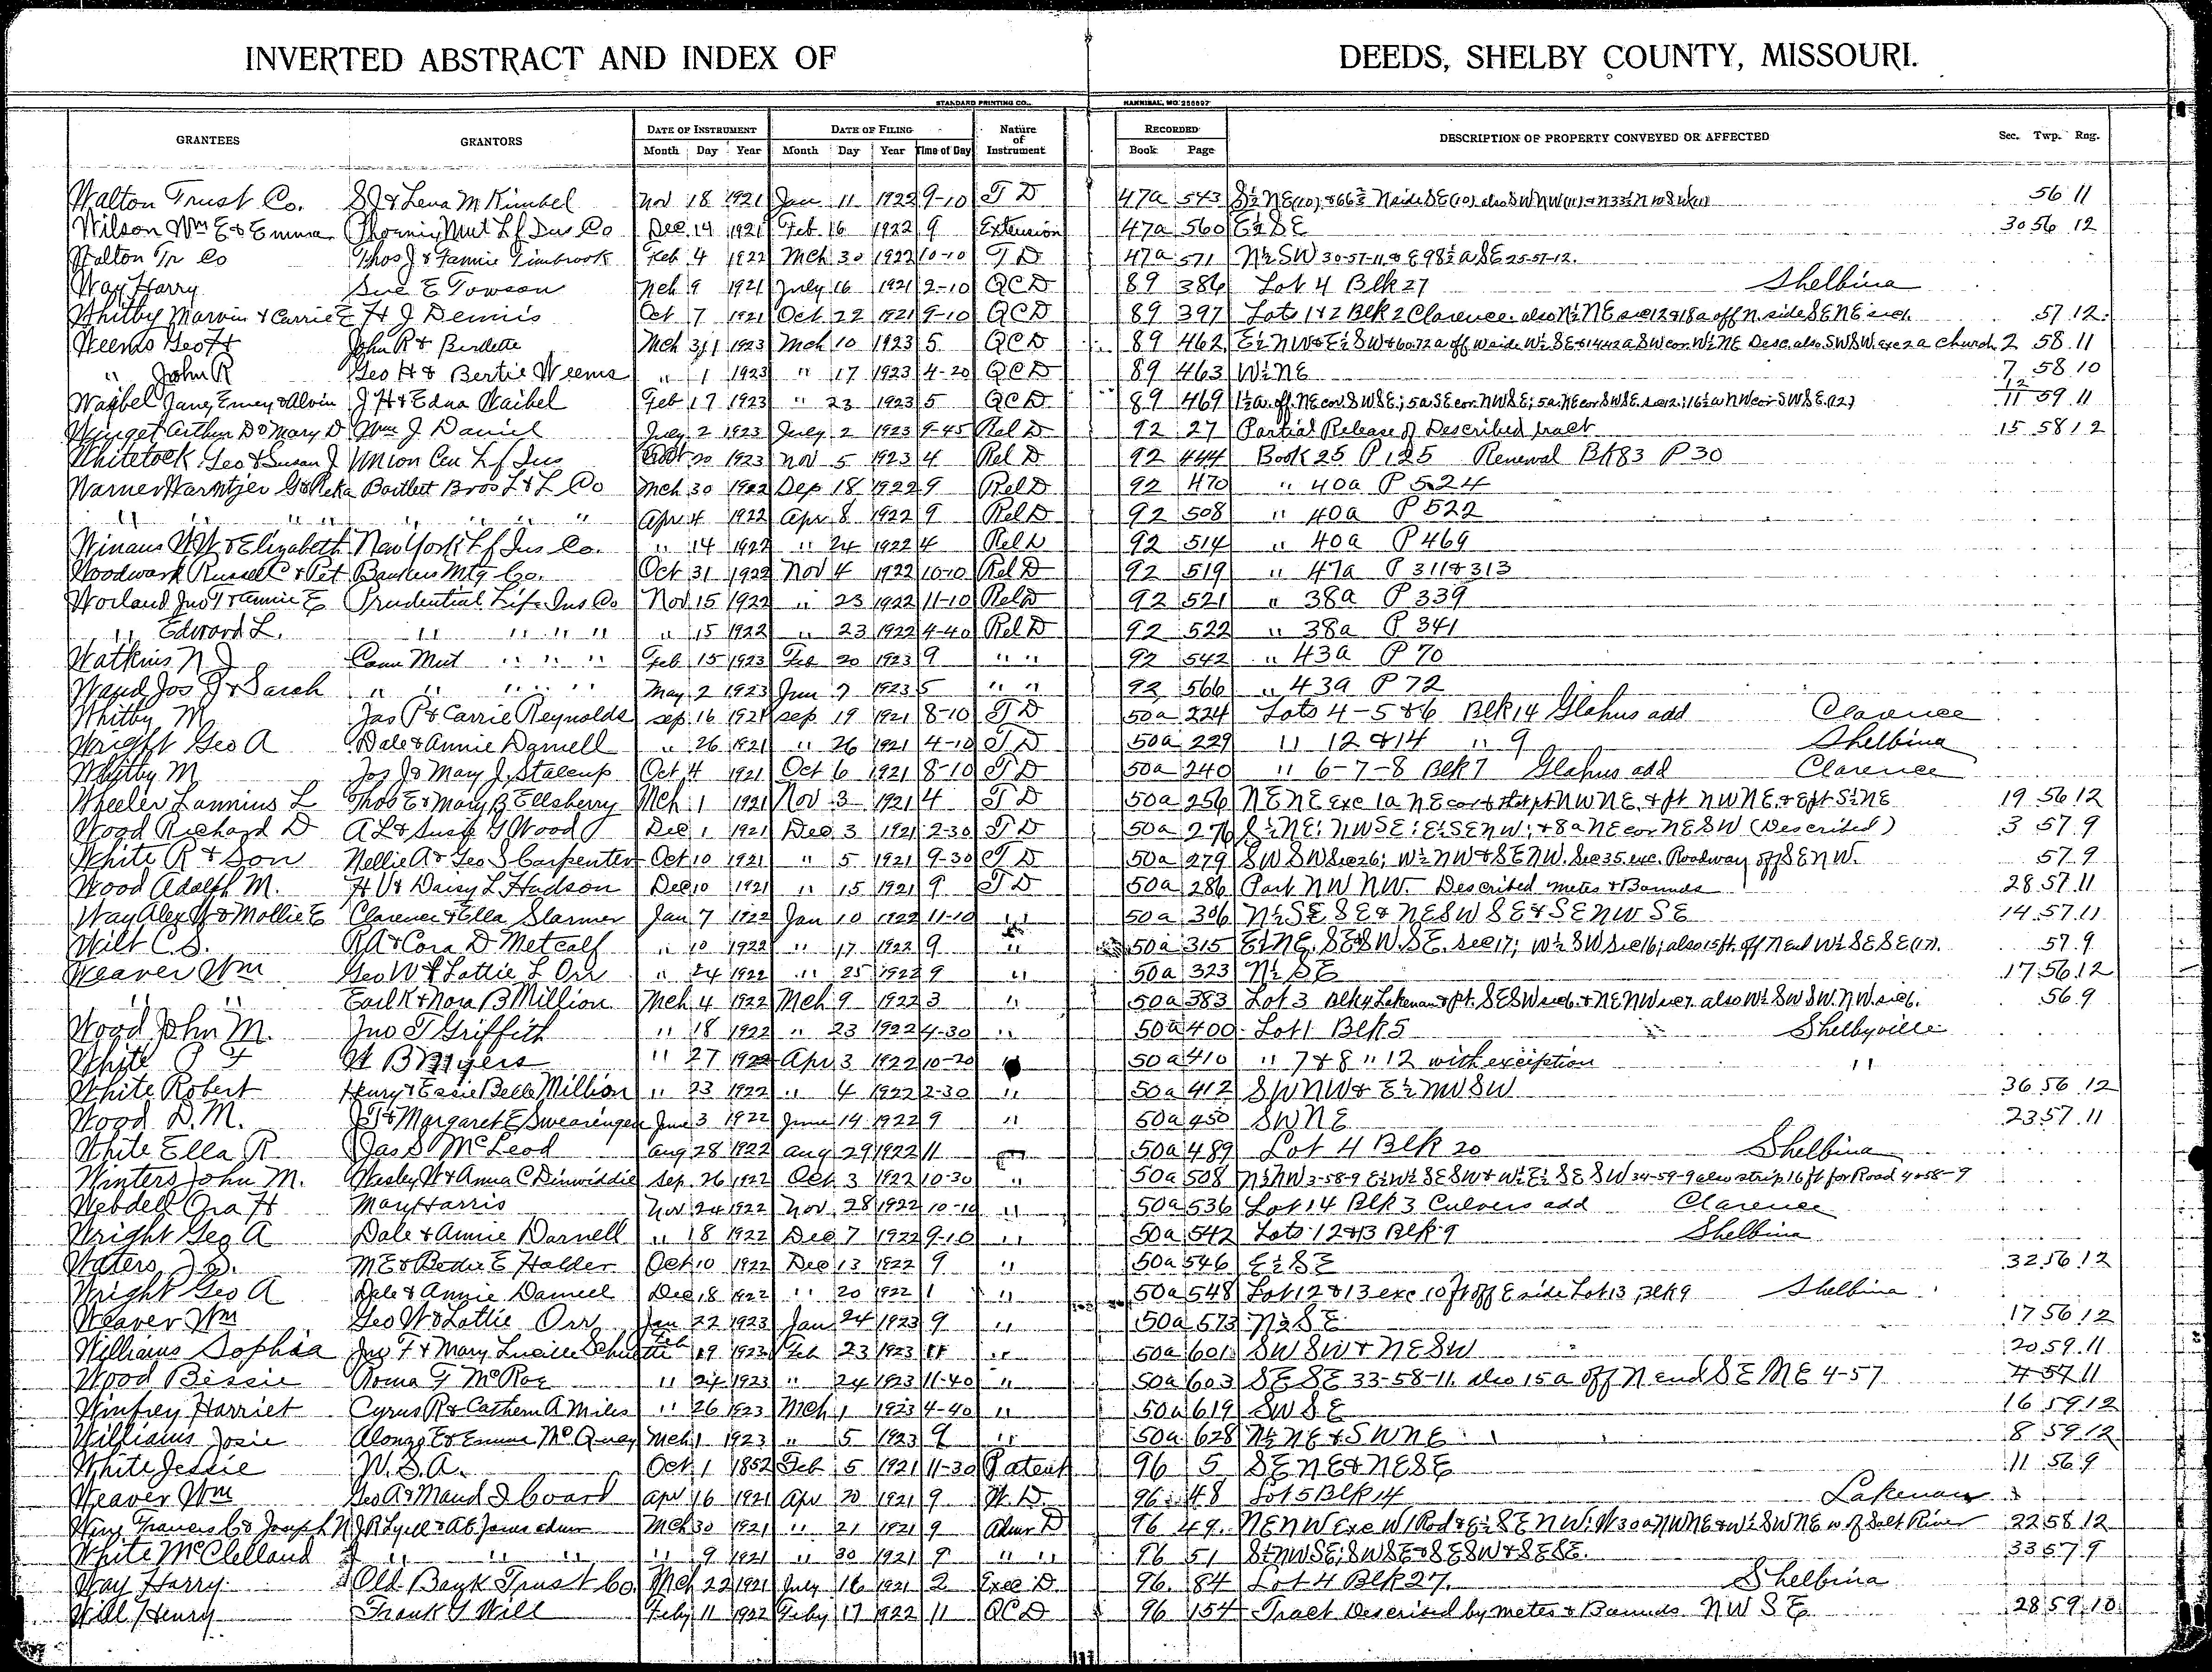 INVERTED ABSTRACT AND INDEX OF DEEDS, SHELBY COUNTY, MISSOURI.
STANDARD PRINTING CO., HANNIBAL, MO. 256897
GRANTEES GRANTORS DATE OF INSTRUMENT DATE OF FILING Nature of Instrument RECORDED DESCRIPTION OF PROPERTY CONVEYED OR AFFECTED Sec. Twp. Rng.
Month Day Year Month Day Year Time of Day Book Page
Walton Trust Co. S J & Lena M Kimbel Nov 18 1921 Jan 11 1922 9-10 T D 47a 543 S½ NE(10) & 66⅔ N side SE(10) also SW NW(11) & N 33⅓ NW SW(11) 56 11
Wilson Wm E & Emma Phoenix Mut Lf Ins Co Dec 14 1921 Feb 16 1922 9 Extension 47a 560 E½ SE 30 56 12
Walton Tr Co Thos J & Fannie Timbrook Feb 4 1922 Mch 30 1922 10-10 T D 47a 571 N½ SW 30-57-11 & E 98½ a SE 25-57-12.
Way Harry Sue E Towson Mch 9 1921 July 16 1921 2-10 QCD 89 386 Lot 4 Blk 27 Shelbina
Whitby Marvin & Carrie E H J Dennis Oct 7 1921 Oct 22 1921 9-10 QCD 89 397 Lots 1 & 2 Blk 2 Clarence. also N½ NE sec 12 & 18a off N. side SE NE sec 1. 57 12
Weems Geo H John R & Burdette Mch 31 1923 Mch 10 1923 5 QCD 89 462 E½ NW & E½ SW & 60.72a off W side W½ SE & 14.42a SW cor. W½ NE Desc. also SWSW. exc 2a church 2 58 11
" John R Geo H & Bertie Weems " 1 1923 " 17 1923 4-20 QCD 89 463 W½ NE 7 58 10
Waibel Jane, Emey & Alvin J H & Edna Waibel Feb 17 1923 " 23 1923 5 QCD 89 469 1½a. off NE cor. SWSE; 5a SE cor. NWSE; 5a. NE cor SWSE. sec 12; 16½a NW cor SWSE.(12) 12 11 59 11
Winget Arthur D & Mary D Wm J. Daniel July 2 1923 July 2 1923 9-45 Rel D 92 27 Partial Release of Described tract 15 58 12
Whitelock Geo & Susan J Union Cen Lf Ins Oct 20 1923 Nov 5 1923 4 Rel D 92 444 Book 25 P 125 Renewal Bk 83 P 30
Warner Harmtjer G & Reka Bartlett Bros L & L Co Mch 30 1922 Sep 18 1922 9 Rel D 92 470 " 40a P 524
" " " " " " " " Apr 4 1922 Apr 8 1922 9 Rel D 92 508 " 40a P 522
Winans W W & Elizabeth New York Lf Ins Co. " 14 1922 " 24 1922 4 Rel D 92 514 " 40a P 469
Woodward Russell C & Pet Bankers Mtg Co. Oct 31 1922 Nov 4 1922 10-10 Rel D 92 519 " 47a P 311 & 313
Worland Jno T & Annie E Prudential Life Ins Co Nov 15 1922 " 23 1922 11-10 Rel D 92 521 " 38a P 339
" Edward L. " " " " " 15 1922 " 23 1922 4-40 Rel D 92 522 " 38a P 341
Watkins N J Conn Mut " " " Feb 15 1923 Feb 20 1923 9 " " 92 542 " 43a P 70
Wand Jos J & Sarah " " " " " May 2 1923 Jun 7 1923 5 " " 92 566 " 43a P 72
Whitby M Jas P & Carrie Reynolds Sep 16 1921 Sep 19 1921 8-10 T D 50a 224 Lots 4-5 & 6 Blk 14 Glahns add Clarence
Wright Geo A Dale & Annie Darnell " 26 1921 " 26 1921 4-10 T D 50a 229 " 12 & 14 " 9 Shelbina
Whitby M Jos J & Mary J. Stalcup Oct 4 1921 Oct 6 1921 8-10 T D 50a 240 " 6-7-8 Blk 7 Glahns add Clarence
Wheeler Lannius L Thos E & Mary B Ellsberry Mch 1 1921 Nov 3 1921 4 T D 50a 256 NENE exc 1a NE cor & that pt NWNE. & pt NWNE. & E pt S½ NE 19 56 12
Wood Richard D A L & Susie G Wood Dec 1 1921 Dec 3 1921 2-30 T D 50a 276 S½ NE; NWSE; E½ SENW; & 8a NE cor NESW (Described) 3 57 9
White R & Son Nellie A & Geo S Carpenter Oct 10 1921 " 5 1921 9-30 T D 50a 279 SWSW Sec 26; W½ NW & SENW. Sec 35 exc. Roadway off SENW. 57 9
Wood Adolph M. H V & Daisy L Hudson Dec 10 1921 " 15 1921 9 T D 50a 286 Part NWNW. Described metes & Bounds 28 57 11
Way Alex W & Mollie E Clarence & Ella Slarmer Jan 7 1922 Jan 10 1922 11-10 " 50a 306 N½ SE SE & NESWSE & SENWSE 14 57 11
Wilt C S. R A & Cora D Metcalf " 10 1922 " 17 1922 9 " 50a 315 E½ NE. SE & SW.SE. sec 17; W½ SW Sec 16; also 15 ft. off N end W½ SESE(17). 57 9
Weaver Wm Geo W & Lottie L Orr " 24 1922 " 25 1922 9 " 50a 323 N½ SE 17 56 12
" " Earl K & Nora B Million Mch 4 1922 Mch 9 1922 3 " 50a 383 Lot 3 Blk 4 Lakenan & pt. SESW sec 6. & NENW sec 7. also W½ SWSW.NW. sec 6. 56 9
Wood John M. Jno T Griffith " 18 1922 " 23 1922 4-30 " 50a 400 Lot 1 Blk 5 Shelbyville
White P F W B Myers " 27 1922 Apr 3 1922 10-20 50a 410 " 7 & 8 " 12 with exception "
White Robert Henry & Essie Belle Million " 23 1922 " 4 1922 2-30 " 50a 412 SWNW & E½ NWSW 36 56 12
Wood D.M. J T & Margaret E Swearingen June 3 1922 June 14 1922 9 " 50a 450 SWNE 23 57 11
White Ella R Jas S McLeod Aug 28 1922 Aug 29 1922 11 50a 489 Lot 4 Blk 20 Shelbina
Winters John M. Wesley W & Anna C Dinwiddie Sep 26 1922 Oct 3 1922 10-30 " 50a 508 N½ NW 3-58-9 E½ W½ SESW & W½ E½ SESW 34-59-9 also strip 16 ft for Road 4-58-9
Webdell Ora H Mary Harris Nov 24 1922 Nov 28 1922 10-10 " 50a 536 Lot 14 Blk 3 Culvers add Clarence
Wright Geo A Dale & Annie Darnell " 18 1922 Dec 7 1922 9-10 " 50a 542 Lots 12 & 13 Blk 9 Shelbina
Waters J S. M E & Bettie E Holder Oct 10 1922 Dec 13 1922 9 " 50a 546 E½ SE 32 56 12
Wright Geo A Dale & Annie Darnell Dec 18 1922 " 20 1922 1 " 50a 548 Lot 12 & 13 exc 10 ft off E side Lot 13 Blk 9 Shelbina
Weaver Wm Geo W & Lottie Orr Jan 22 1923 Jan 24 1923 9 " 50a 573 N½ SE 17 56 12
Williams Sophia Jno F & Mary Lucille Schuette Feb 19 1923 Feb 23 1923 11 " 50a 601 SWSW & NESW 20 59 11
Wood Bessie Roma G McRoe " 24 1923 " 24 1923 11-40 " 50a 603 SESE 33-58-11. also 15a off N end SE NE 4-57 4 57 11
Winfrey Harriet Cyrus R & Cathern A Miles " 26 1923 Mch 1 1923 4-40 " 50a 619 SWSE 16 59 12
Williams Josie Alonzo E & Emma McQuay Mch 1 1923 " 5 1923 9 " 50a 628 N½ NE & SWNE 8 59 12
White Jessie U.S.A. Oct 1 1852 Feb 5 1921 11-30 Patent 96 5 SENE & NESE 11 56 9
Weaver Wm Geo A & Maud I Coard Apr 16 1921 Apr 20 1921 9 W.D. 96 48 Lot 5 Blk 14 Lakenan
Wing Frances C & Joseph N J R Lyell & A E Jones adm Mch 30 1921 " 21 1921 9 Admr D 96 49 NENW exc W 1 Rod & E½ SENW; W 30a NWNE & W½ SWNE W of Salt River 22 58 12
White McClelland " " " " 9 1921 " 30 1921 9 " " 96 51 S½ NWSE; SWSE & SESW & SESE. 33 57 9
Way Harry Old Bank Trust Co. Mch 22 1921 July 16 1921 2 Exec D 96 84 Lot 4 Blk 27. Shelbina
Will Henry Frank G Will Feby 11 1922 Feby 17 1922 11 QCD 96 154 Tract Described by metes & Bounds NWSE 28 59 10